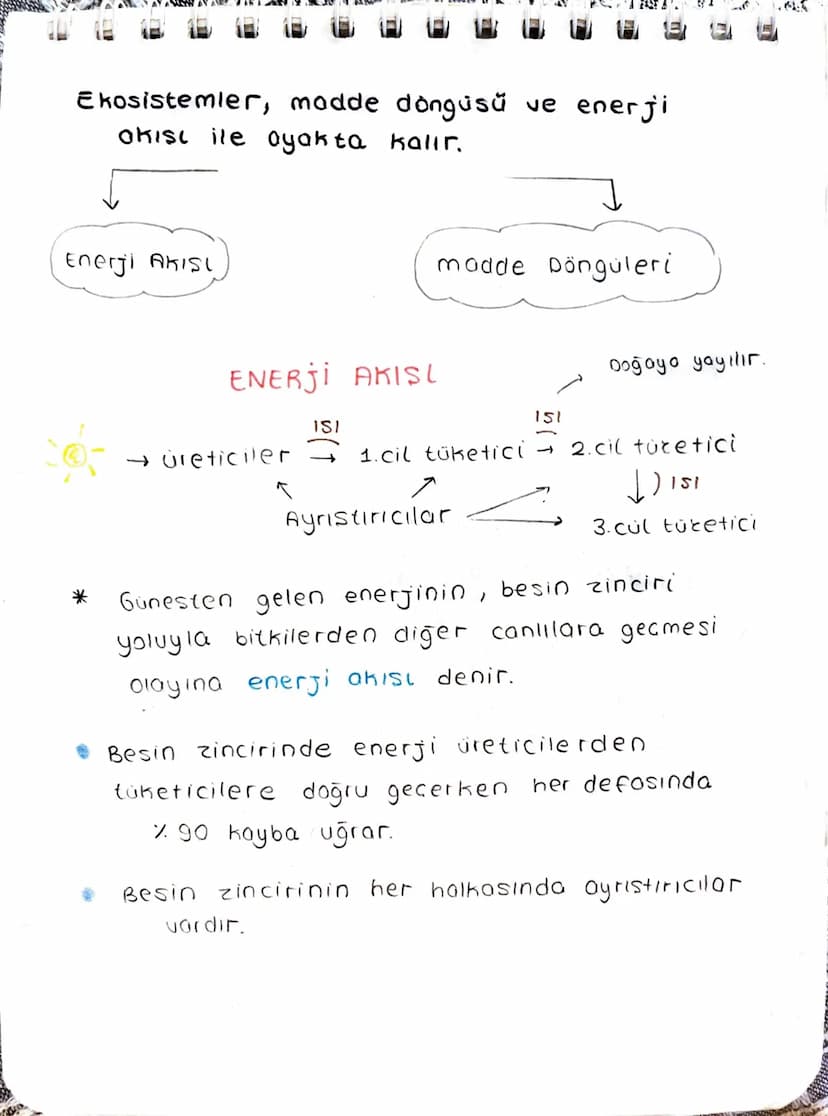 Ekosistemler, madde döngüsü ve enerji
akısı ile ayakta kalır.
Enerji Akısı
madde Döngüleri
ENERJİ AKISI
Doğaya yayılır.
ISI
ISI
→ üreticiler → 1.cil tüketici → 2.cil tüketici
ISI
Ayrıstırıcılar
3.cül tüketici
* Günesten gelen enerjinin, besin zinciri
yoluyla bitkilerden diğer canlılara gecmesi
olayına enerji akısı denir.
• Besin zincirinde enerji üreticilerden
tüketicilere doğru gecerken her defasında
% 90 kayba uğrar.
• Besin zincirinin her halkasında ayrıstırıcılar
vardır.